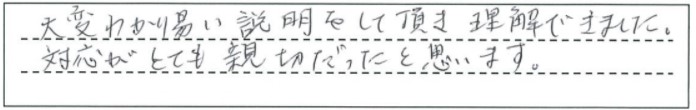 大変わかり易い説明をして頂き理解できました。
対応がとても親切だったと思います。